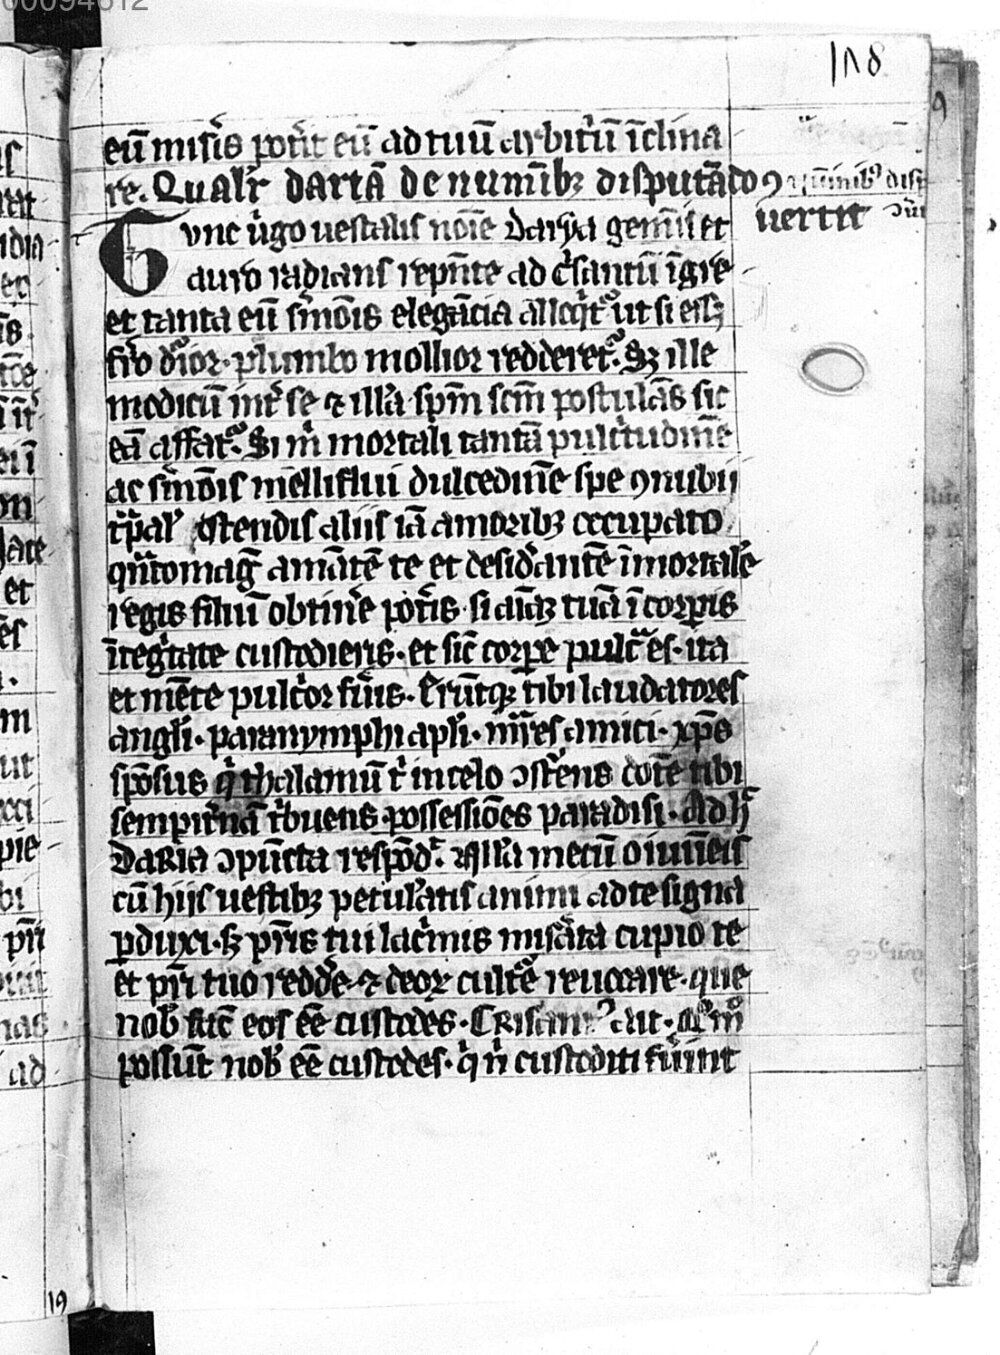 00094612
118
eū miſ'is pot'it eū ad tuū arbit'ū īclina
re. Qualit' dariā de numīb; diſputādo ꝯ
uertit
Tvnc u'go ueſtalis noīe darya gem̄is et
auro radians repn̄te ad c'ſantū īgre
et tanta eū ſ'mōis elegācia ut ſi eſſ;
f'ro d'ior. plumbo mollior redderet'. S; ille
modicū int' ſe ⁊ illā ſpm̄ ſcm̄ poſtulās ſic
eā affat'. Si m' mortali tantā pulc'tudinē
ac ſ'mōis melliflui dulcedinē ſpe ꝯnubij
t'pal' oſtendis aliis iā amorib; occupato
qn̄to mag' amātē te et deſid'antē īmortale
regis filiū obtin'e pot'is. ſi aīā; tuā ī corꝑis
īteg'tate cuſtodieris. et ſic̄ corꝑe pulc̄ es. ita
et mēte pulc'or fu'is. Erūtq; tibi laudatores
angl'i. paranymphi apl'i. mr̄es amici. xp̄s
ſpōſus q' thalamū t' in celo oſt'ens dotē tibi
ſempit'nā t'buens poſſeſſiōes paradiſi. Ad h'
Daria ꝯpūcta reſpōd'. Illa mecū o iuūeis
cū hijs ueſtib; petulātis animi ad te ſigna
ꝑduxi. ſ; pr̄is tui lac'mis miſ'ata cupio te
et pr̄i tuo redd'e ⁊ deoꝝ cult'e reuocare. que
nob' fac̄ eos eē cuſtodes. Criſant' ait.
poſſūt nob' eē cuſtodes. q' n̄ cuſtoditi fu'int
19